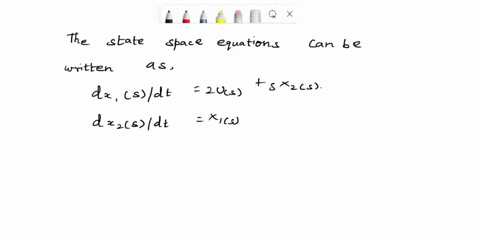 The state space equations can be
written as,
dx₁(s)/dt = 2U(s) + 5x₂(s).
dx₂(s)/dt = x₁(s)